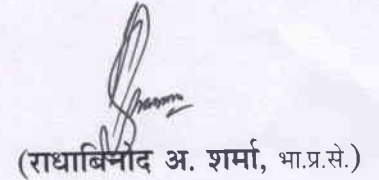 (राधाबिनोद अ. शर्मा, भा.प्र.से.)